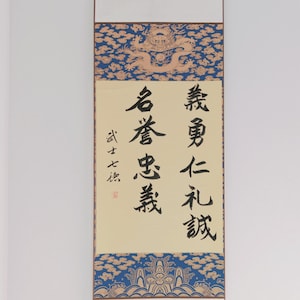 義勇仁礼誠
名誉忠義
武士七徳